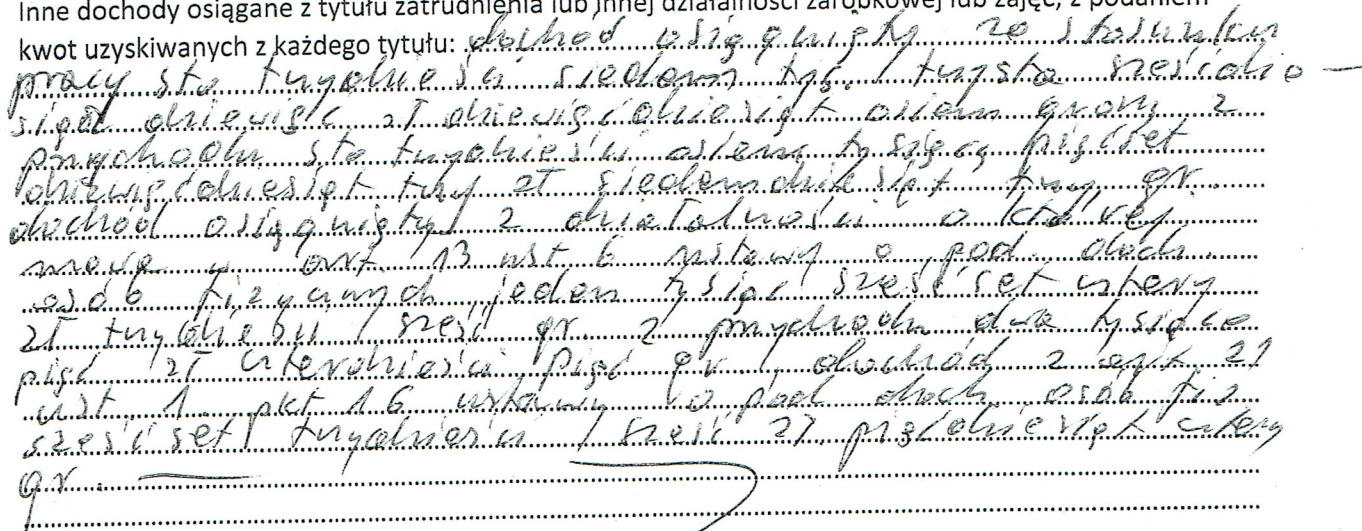 Inne dochody osiągane z tytułu zatrudnienia lub innej działalności zarobkowej lub zajęć, z podaniem
kwot uzyskiwanych z każdego tytułu: dochód osiągnięty ze stosunku
pracy sto trzydzieści siedem tys. trzysta sześćdzie-
siąt dziewięć zł dziewięćdziesiąt osiem groszy z
przychodu sto trzydzieści osiem tysięcy pięćset
dziewięćdziesiąt trzy zł siedemdziesiąt trzy gr.
dochód osiągnięty z działalności o której
mowa w art. 13 ust 6 ustawy o pod. doch.
osób fizycznych jeden tysiąc sześćset cztery
zł trzydzieści sześć gr. z przychodu dwa tysiące
pięć zł czterdzieści pięć gr, dochód z art. 21
ust. 1 pkt 16 ustawy o pod doch. osób fiz
sześćset trzydzieści sześć zł pięćdziesiąt cztery
gr.